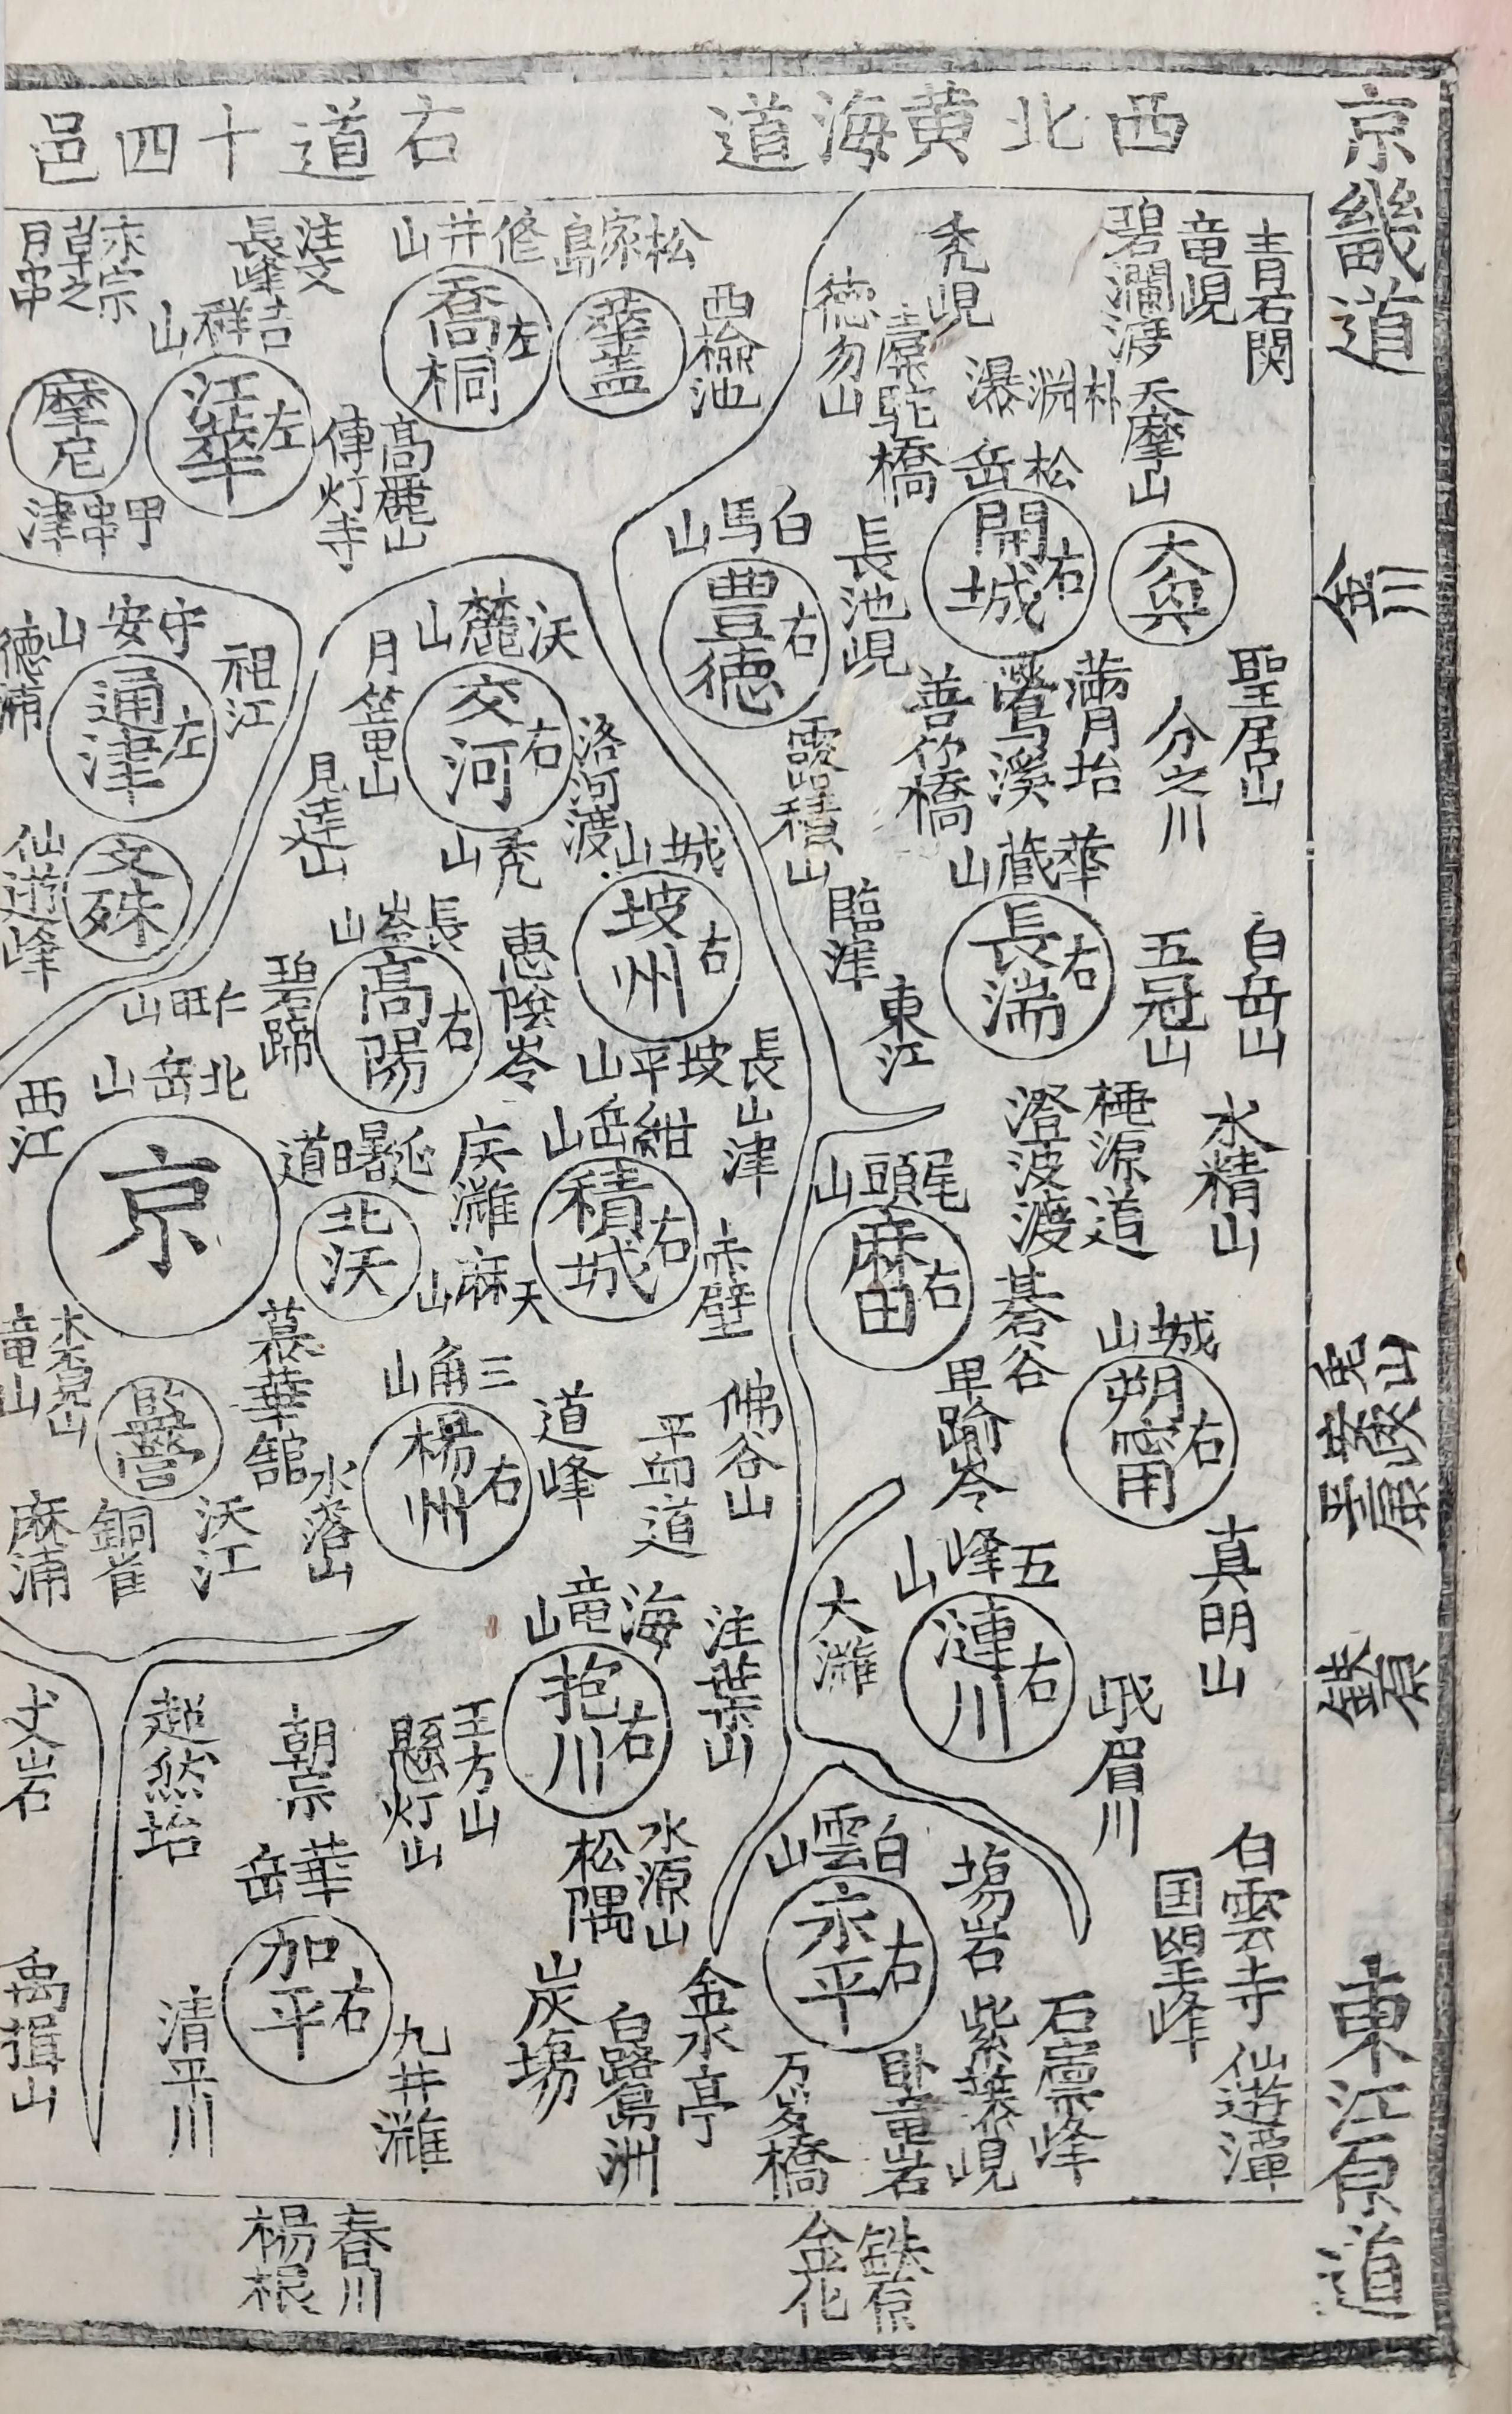 京畿道
金川
兎山
平康
鉄原
東江原道
西北黄海道
右道十四邑
青石関
竜峴
碧瀾渡
天摩山
大興
聖居山
白岳山
水精山
禿峴
槖駝橋
徳勿山
朴淵瀑
松岳
開城右
満月坮
鶯溪
善竹橋
分之川
五冠山
華蔵山
長湍右
桃源道
澄波渡
碁谷
長池峴
白馬山
豊徳右
霞積山
臨津
東江
尾頭山
麻田右
城山
朔寧右
真明山
卑踰岑
五峰山
漣川右
大灘
峨眉川
白雲寺
仙遊潭
国望峰
白雲山
永平右
塲岩
紫蓽峴
石凛峰
卧竜岩
万歩橋
金水亭
白鷺洲
西檢池
松家島
華盖
修井山
喬桐左
高麗山
傳灯寺
注文
長峰
吉祥山
江華左
赤宗
草之
月串
摩尼
甲串津
沃麓山
交河右
洛河渡
月籠山
見達山
禿山
城山
坡州右
惠陰岺
長岺山
高陽右
碧蹄
坡平山
長山津
紺岳山
積城右
赤壁
庆灘
天麻山
延曙道
北沃
三角山
楊州右
道峰
平邱道
佛谷山
海竜山
抱川右
注葉山
水源山
松隅
炭塲
王方山
懸灯山
九井灘
守安山
通津左
祖江
徳浦
文殊
仙遊峰
仁王山
北岳山
京
西江
慕華舘
木覓山
竜山
水落山
沃江
銅雀
麻浦
丈岩
超然坮
朝宗
華岳
加平右
清平川
禹揖山
鉄原
金化
春川
楊根